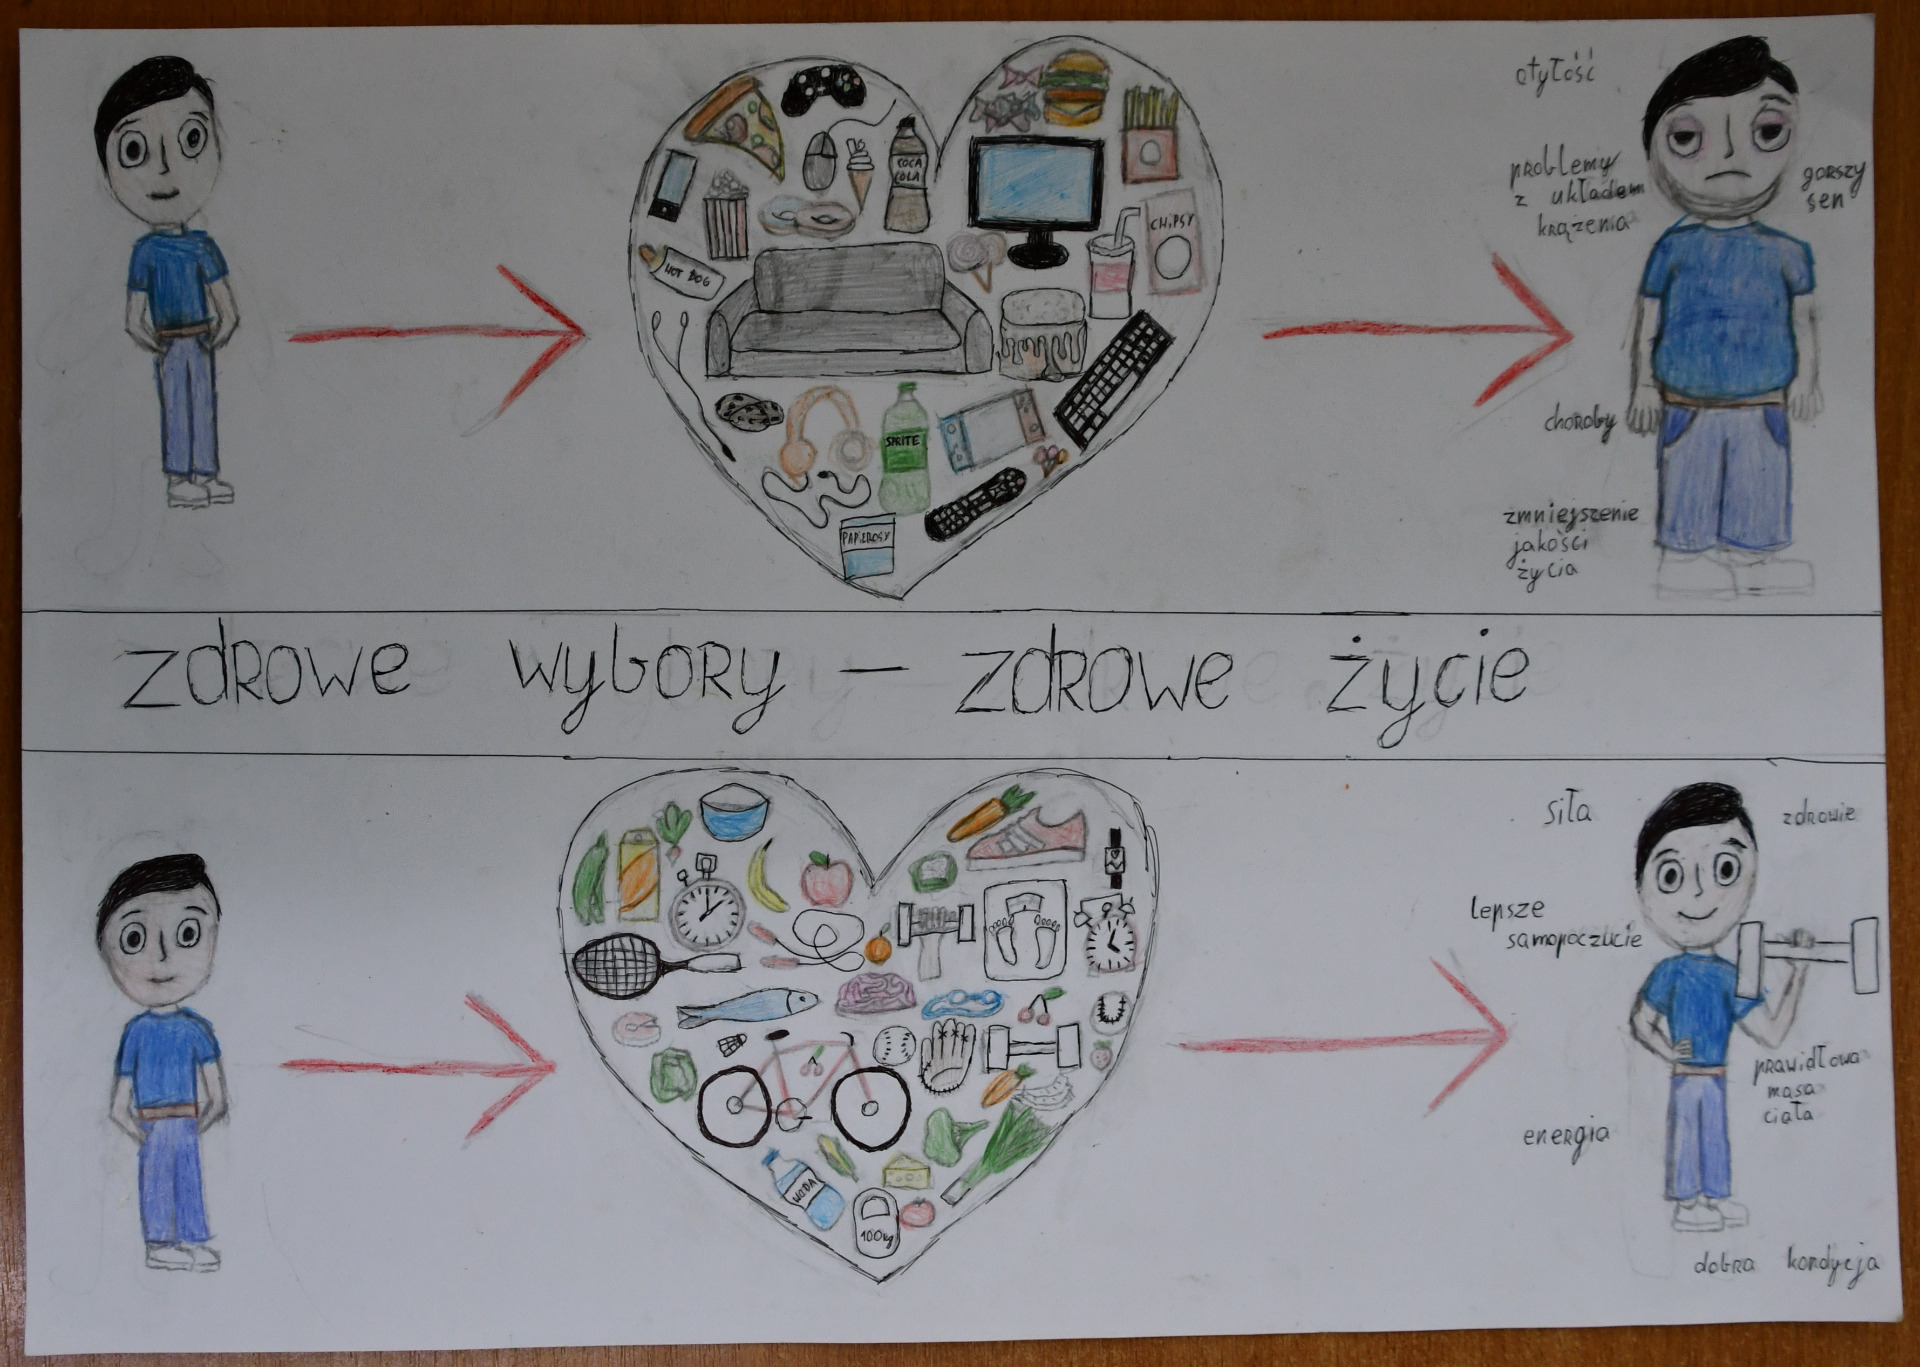 otyłość
problemy
z układem
krążenia
gorszy
sen
choroby
zmniejszenie
jakości
życia
COCA
COLA
CHiPSY
HOT DOG
SPRITE
PAPIEROSY
zdrowe wybory – zdrowe życie
siła
zdrowie
lepsze
samopoczucie
prawidłowa
masa
ciała
energia
dobra kondycja
WODA
100kg